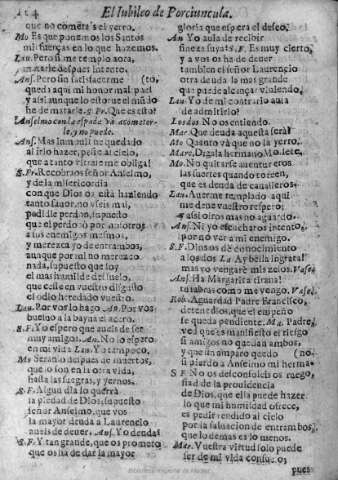 El Iubileo de Porciuncula.
que no cometa's el yerro.
Mo Es que ponemos los Santos
mis fuerças en lo que hazemos.
Lau. Pero si me templo aora,
matarle despues intento.
Ans. Pero sin satisfacerme (to,
queda aqui mi honor mal pues
y assi aunque lo estorue el mũdo
he de matarle. S. Fr. Que es esto?
Anselmo con la espada và à acometer-
le, y no puede.
Ans. Mas immobil he quedado
al irlo hazer, pese al cielo,
que a tanto risco me obliga!
S. Fr. Recobraos señor Anselmo,
y de la misericordia
con que Dios os està haziendo
tanto fauor, no vseis mal,
pedilde perdon, supuesto
que el perdon por nosotros
a sus enemigos mismos,
y merezca yo de entrambos,
aunque por mi no merezco
nada, supuesto que soy
el mas humilde del suelo,
que cesse en vuestro disgusto
el odio heredado vuestro.
Lau. Por vos lo hago. An. Por vos
bueluo a la bayna el acero.
S. F. Y espero que aueis de ser
muy amigos. An. No lo espero
en mi vida Lau. Y o tampoco.
Mo Seranlo despues de muertos,
que lo son en la otra vida,
hasta las suegras, y yernos.
S. F. Algun dia lo querrà
la piedad de Dios, supuesto
señor Anselmo, que vos
la mayor deuda a Laurencio
aueis de deuer. Ans. Yo deuda?
S. F. Y tan grande, que os prometo
que os ha de dar la mayor
gloria que espera el deseo.
An Yo auia de recibir
fineza suya? S. F. Es muy cierto,
y a vos os ha de deuer
tambien el señor Laurencio
otra deuda la mas grande
que puede alcançar viuiendo.
Lau Yo de mi contrario auia
de admitirlo?
Los dos No os entiendo.
Mar. Que deuda aquesta serà?
Mo Quanto và que no la yerro.
Mar. Digala hermano Moquete.
Mo No quisierase auenturar eros
las suertes quando toreen,
que es deuda de caualleros.
Lau. Auerme templado aqui
me deue vuestro respeto,
y assi oiros mas no aguardo.
Ans. Ni yo escucharos intento,
por no ver a mi enemigo.
S. F. Dios os dè conocimiento
a los dos La Ay bella ingrata!
mas yo vengarè mis zelos. Vase.
Ans. Ha Margarita tirana!
tu sabràs como me vengo. Vase.
Rob. Aguardad Padre Francisco,
detenedlos, que el empeño
se queda pendiente. Ma. Padre,
ved que es manifiesto el riesgo
si amigos no quedan ambos,
y que un amparo quedo (no.
si pierdo a Anselmo mi herma-
S. F. No os desconsoleis os ruego,
fiad de la prouidencia
de Dios, que ella puede hazer
lo que mi humildad ofrece,
es pedir rendido al cielo
por la saluacion de entrambos,
que lo demas es lo menos.
Mar. Vuestra virtud solo puede
ser de mi vida consuelo;
pues